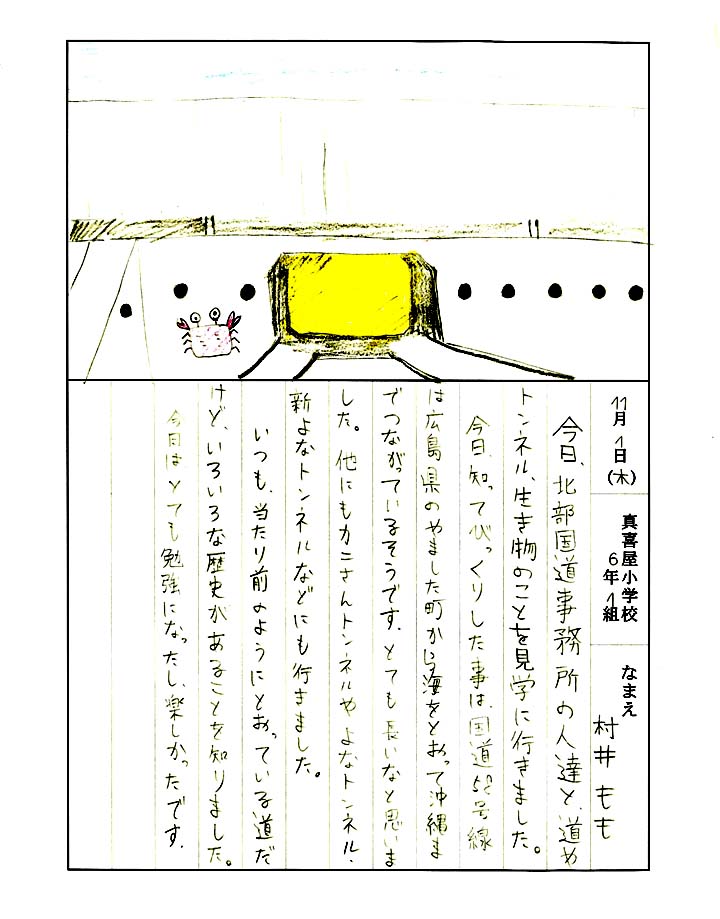 11月1日(木)
真喜屋小学校
6年1組
なまえ
村井もも
今日、北部国道事務所の人達と、道や
トンネル、生き物のことを見学に行きました。
今日、知ってびっくりした事は、国道58号線
は広島県のやました町から海をとおって沖縄ま
でつながっているそうです。とても長いなと思いま
した。他にもカニさんトンネルやよなトンネル、
新よなトンネルなどにも行きました。
いつも、当たり前のようにとおっている道だ
けど、いろいろな歴史があることを知りました。
今日は、とても勉強になったし、楽しかったです。